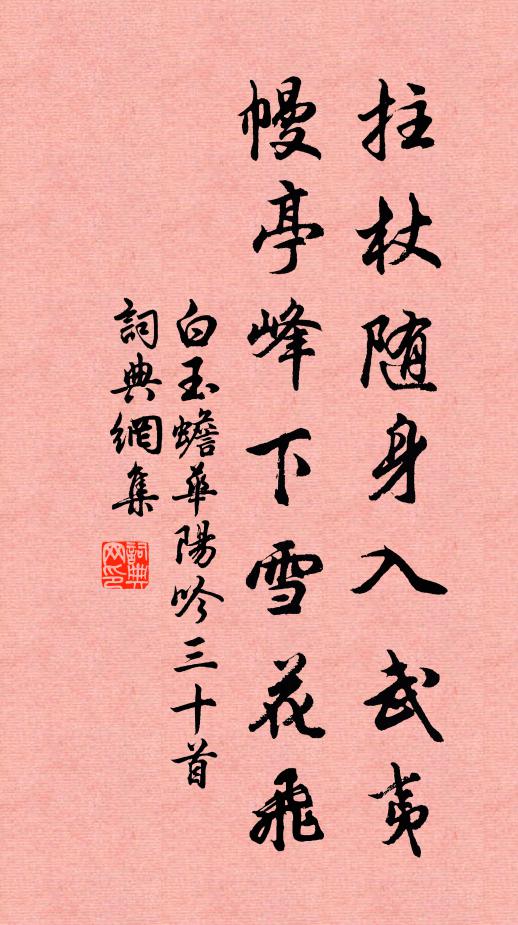 拄杖随身入武夷
幔亭峰下雪花飛
白玉蟾華陽吟三十首
詞典網集
詞典網印